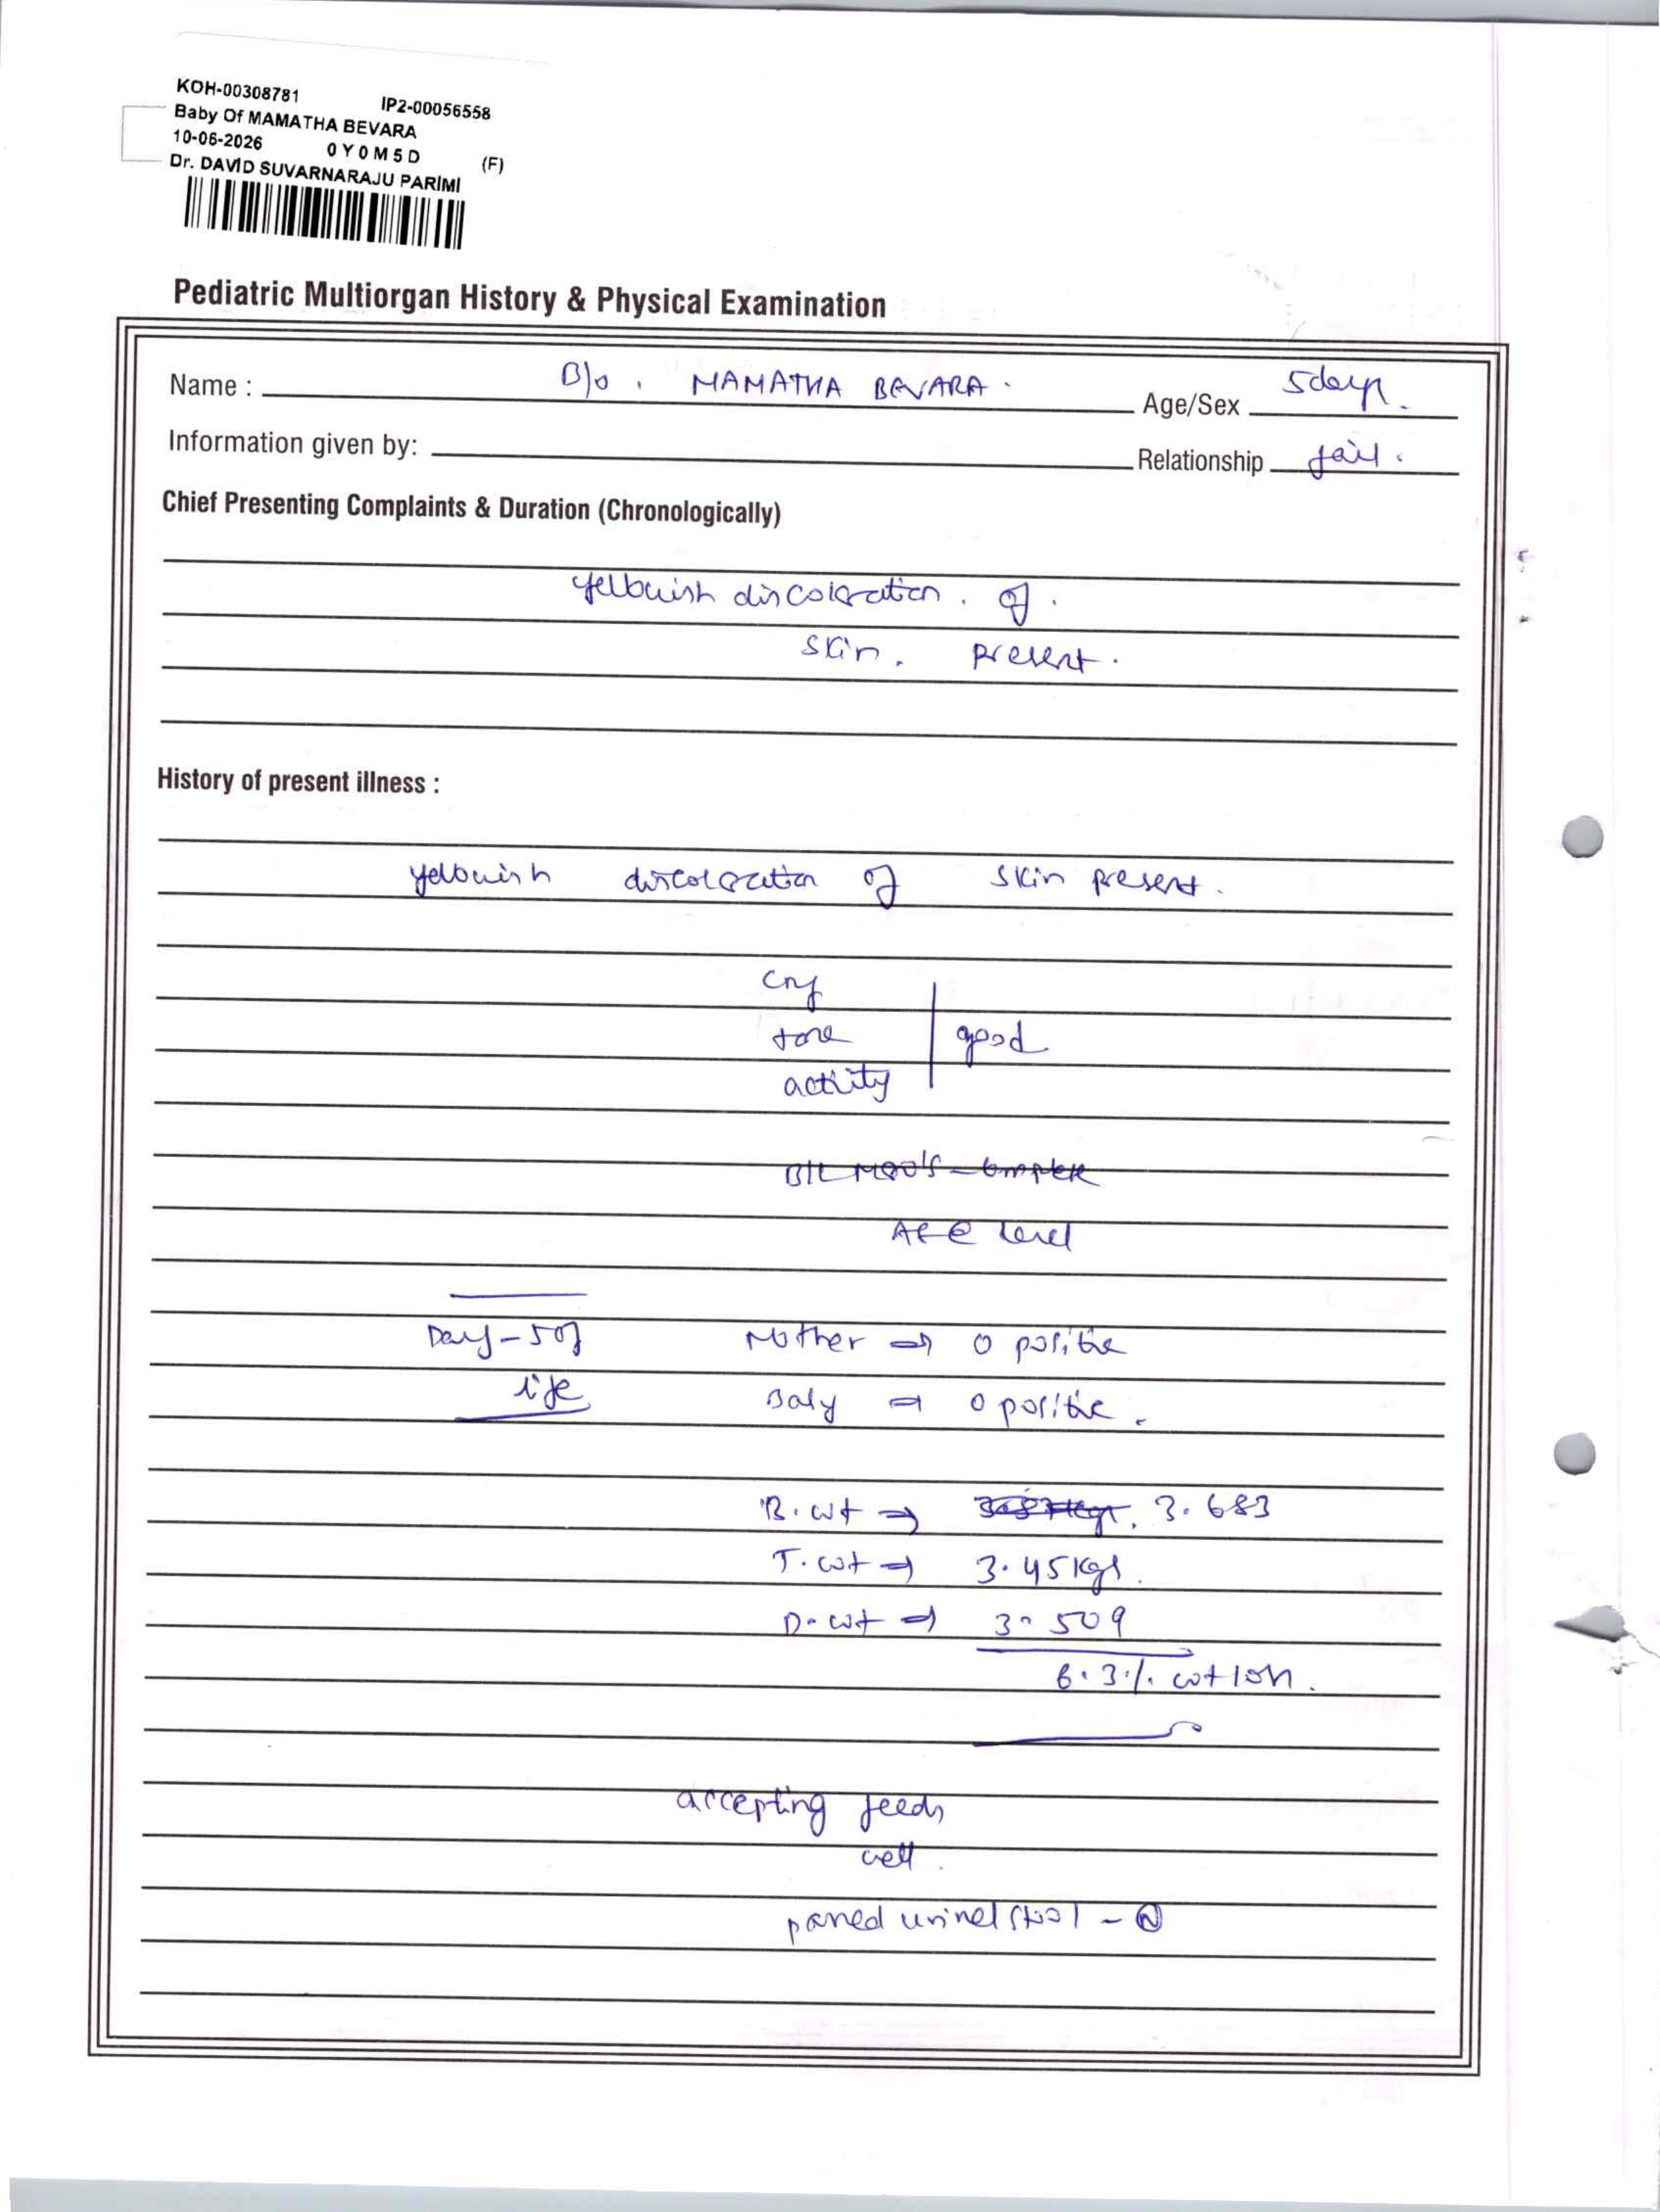 KOH-00308781 IP2-00056558
Baby Of MAMATHA BEVARA
10-06-2026 0Y0M5D (F)
Dr. DAVID SUVARNARAJU PARIMI
Pediatric Multiorgan History & Physical Examination
Name : B/o. MAMATHA BEVARA. Age/Sex 5days.
Information given by: Relationship
Chief Presenting Complaints & Duration (Chronologically)
yellowish discoloration. of.
skin. present.
History of present illness :
yellowish discoloration of skin present.
cry
tone good
activity
B/L
AF @ level
Day-5 of Mother ⇒ O positive
life Baby ⇒ O positive.
B.wt ⇒ 3.683
T.wt ⇒ 3.45kgs.
D.wt ⇒ 3.509
6.3% wt loss.
accepting feeds
well.
passed urine/stool - N